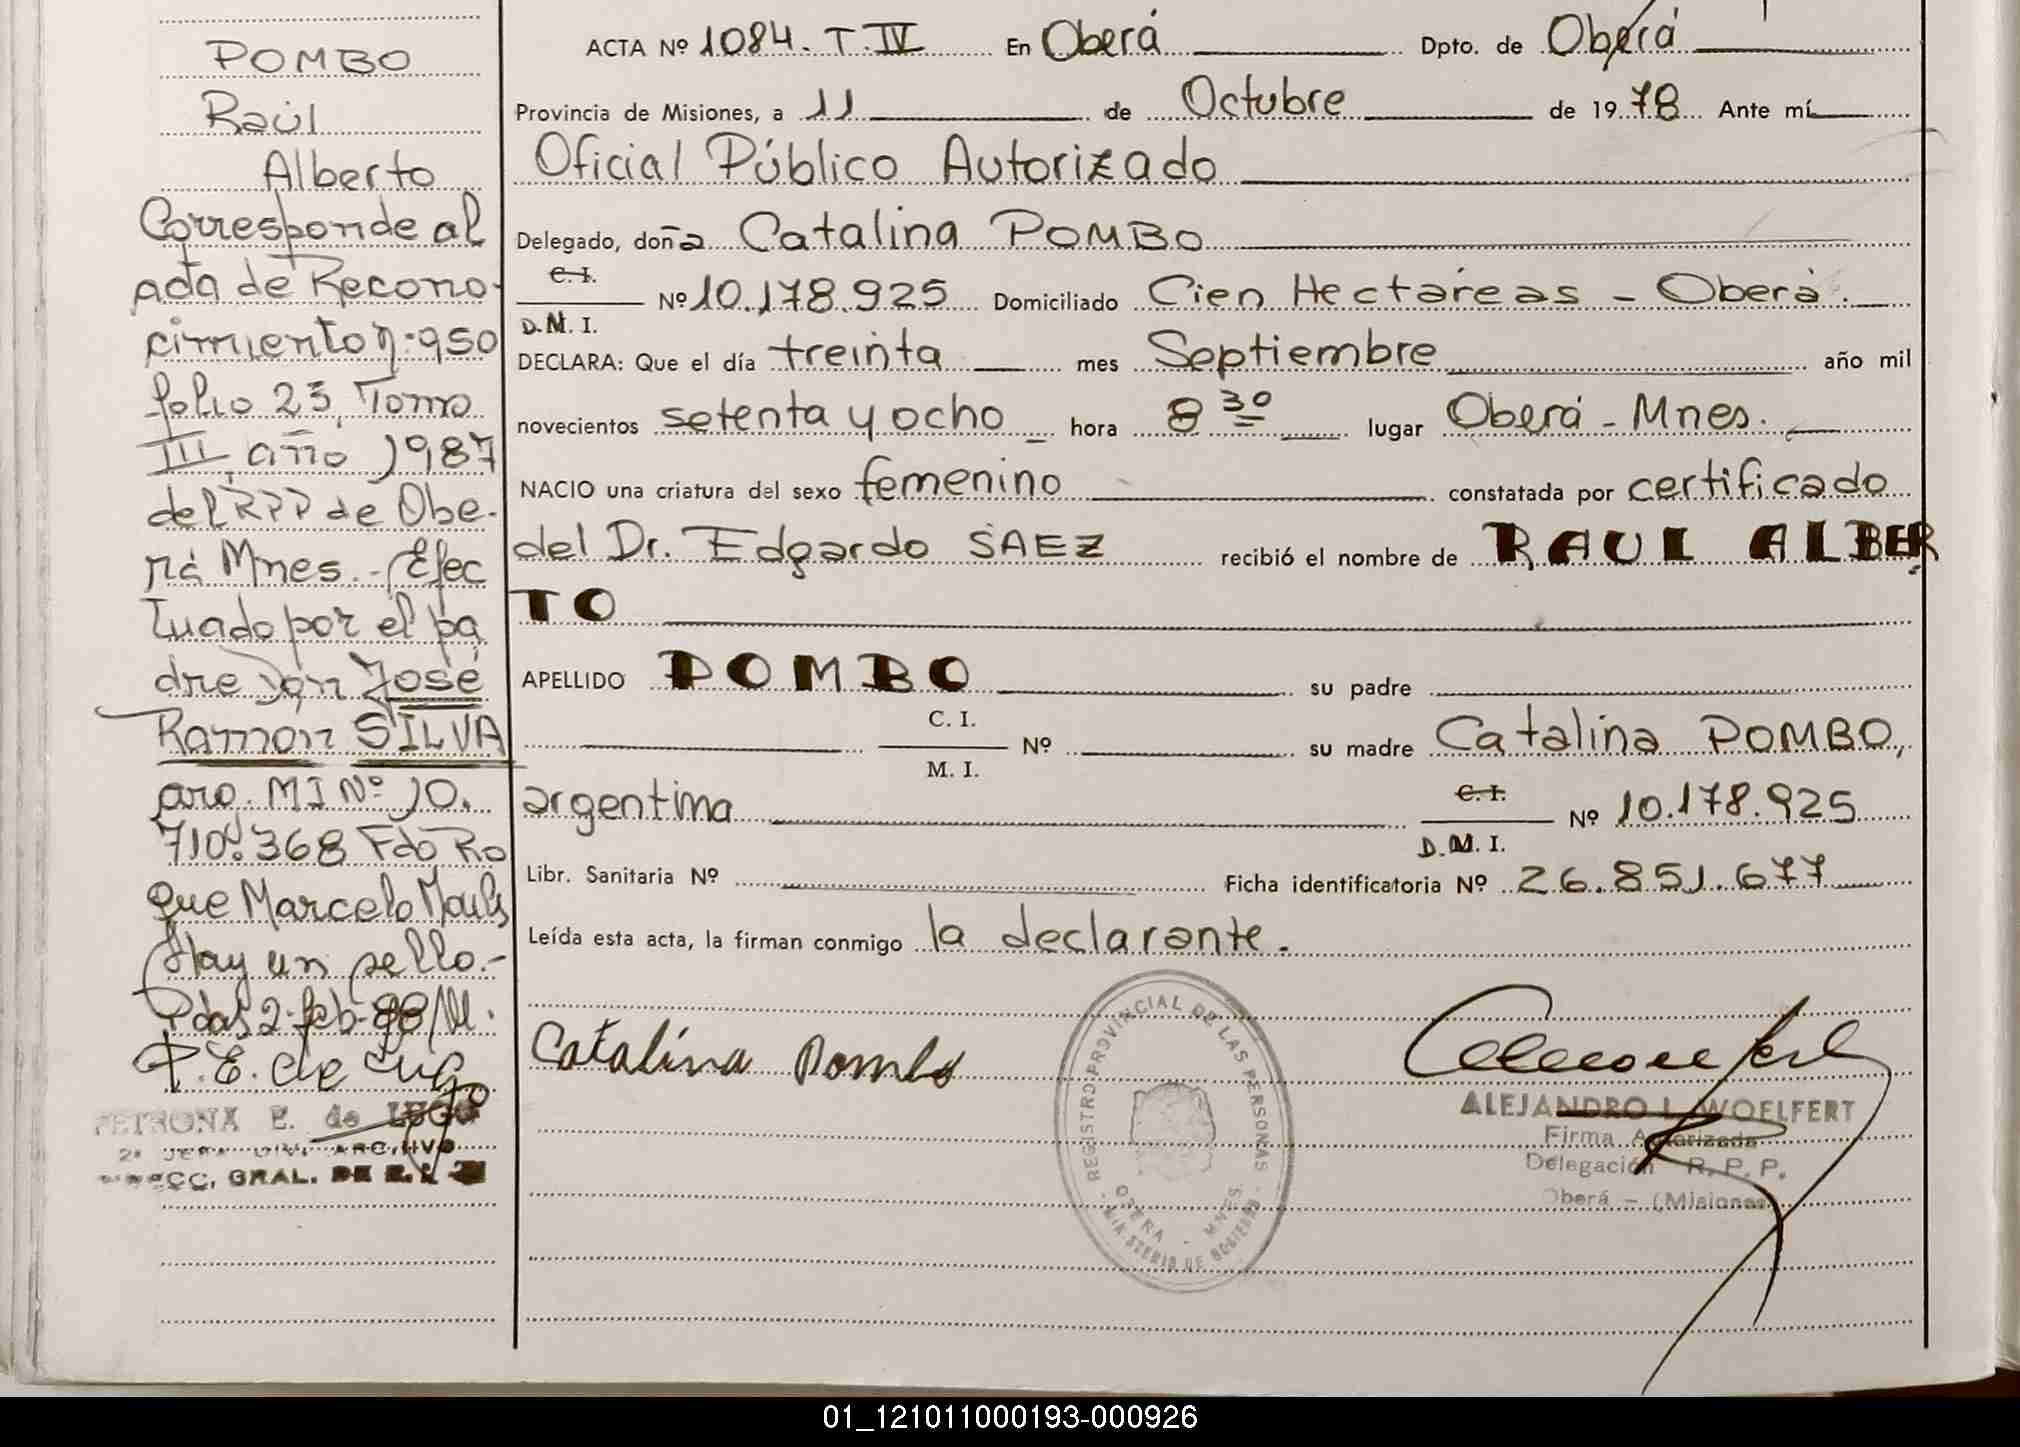 POMBO
Raúl
Alberto
Corresponde al
acta de Recono-
cimiento nº 950
folio 23, Tomo
III año 1987
del RPP de Obe-
rá Mnes.- Efec
tuado por el pa
dre Don José
Ramón SILVA
arg. MI Nº 10.
710.368 Fdo Ro
que Marcelo
Hay un sello.-
Pdas 2-feb-88
P. E. de Lugo
PETRONA E. de LUGO
2º JEFA DIV. ARCHIVO
DIRECC. GRAL. DE
ACTA Nº 1084. T. IV En Oberá Dpto. de Oberá
Provincia de Misiones, a 11 de Octubre de 19 78 Ante mí
Oficial Público Autorizado
Delegado, doña Catalina POMBO
C. I.
Nº 10.178.925 Domiciliado Cien Hectáreas - Oberá.
D.M. I.
DECLARA: Que el día treinta mes Septiembre año mil
novecientos setenta y ocho hora 8 30 lugar Oberá - Mnes.
NACIO una criatura del sexo femenino constatada por certificado
del Dr. Edgardo SAEZ recibió el nombre de RAUL ALBER
TO
APELLIDO POMBO su padre
C. I.
Nº su madre Catalina POMBO,
M. I.
argentina C. I. Nº 10.178.925
D.M. I.
Libr. Sanitaria Nº Ficha identificatoria Nº 26.851.677
Leída esta acta, la firman conmigo la declarante.
Catalina Pombo
REGISTRO PROVINCIAL DE LAS PERSONAS
OBERA - MNES.
MINISTERIO DE GOBIERNO
ALEJANDRO L. WOELFERT
Firma Autorizada
Delegación R. P. P.
Oberá - (Misiones)
01_121011000193-000926